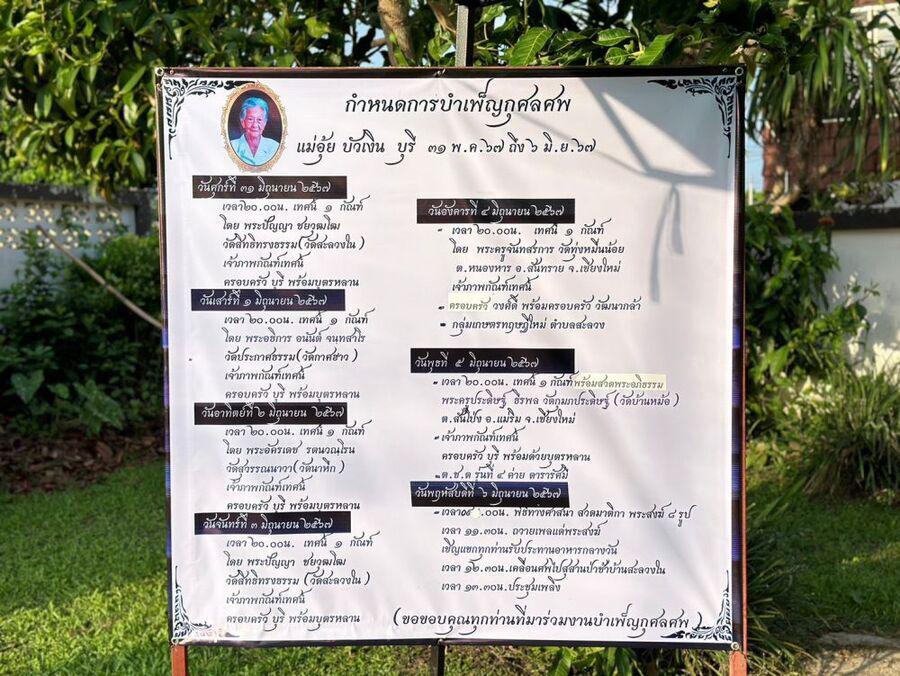 กำหนดการบำเพ็ญกุศลศพ
แม่อุ้ย บัวเงิน บุรี ๓๑ พ.ค.๖๗ ถึง ๖ มิ.ย.๖๗
วันศุกร์ที่ ๓๑ มิถุนายน ๒๕๖๗
เวลา ๒๐.๐๐น. เทศน์ ๑ กัณฑ์
โดย พระปัญญา ชยวุฒโฒ
วัดสิทธิทรงธรรม (วัดสะลวงใน)
เจ้าภาพกัณฑ์เทศน์
ครอบครัว บุรี พร้อมบุตรหลาน
วันเสาร์ที่ ๑ มิถุนายน ๒๕๖๗
เวลา ๒๐.๐๐น. เทศน์ ๑ กัณฑ์
โดย พระอธิการ อนันต์ จนฺทสาโร
วัดประกาศธรรม(วัดกาศข่าว)
เจ้าภาพกัณฑ์เทศน์
ครอบครัว บุรี พร้อมบุตรหลาน
วันอาทิตย์ที่ ๒ มิถุนายน ๒๕๖๗
เวลา ๒๐.๐๐น. เทศน์ ๑ กัณฑ์
โดย พระอัครเดช รตนวณฺโรน
วัดสุวรรณนาวา(วัดนาหึก)
เจ้าภาพกัณฑ์เทศน์
ครอบครัว บุรี พร้อมบุตรหลาน
วันจันทร์ที่ ๓ มิถุนายน ๒๕๖๗
เวลา ๒๐.๐๐น. เทศน์ ๑ กัณฑ์
โดย พระปัญญา ชยวุฒโฒ
วัดสิทธิทรงธรรม (วัดสะลวงใน)
เจ้าภาพกัณฑ์เทศน์
ครอบครัว บุรี พร้อมบุตรหลาน
วันอังคารที่ ๔ มิถุนายน ๒๕๖๗
- เวลา ๒๐.๐๐น. เทศน์ ๑ กัณฑ์
โดย พระครูจันทสรการ วัดทุ่งหมื่นน้อย
ต.หนองหาร อ.สันทราย จ.เชียงใหม่
เจ้าภาพกัณฑ์เทศน์
- ครอบครัว วงศ์ดี พร้อมครอบครัว วัฒนากล้า
- กลุ่มเกษตรทฤษฎีใหม่ ตำบลสะลวง
วันพุธที่ ๕ มิถุนายน ๒๕๖๗
- เวลา ๒๐.๐๐น. เทศน์ ๑ กัณฑ์พร้อมสวดพระอภิธรรม
พระครูประดิษฐ์ ธีรพล วัดกุมภประดิษฐ์ (วัดบ้านหม้อ)
ต.สันโป่ง อ.แม่ริม จ.เชียงใหม่
- เจ้าภาพกัณฑ์เทศน์
ครอบครัว บุรี พร้อมด้วยบุตรหลาน
- ต.ช.ด รุ่นที่ ๔ ค่าย ดารารัศมี
วันพฤหัสบดีที่ ๖ มิถุนายน ๒๕๖๗
.๐๐น. พิธีทางศาสนา สวดมาติกา พระสงฆ์ ๘ รูป
เวลา ๑๑.๓๐น. ถวายเพลแด่พระสงฆ์
เชิญแขกทุกท่านรับประทานอาหารกลางวัน
เวลา ๑๒.๓๐น.เคลื่อนศพไปสุสานป่าช้าบ้านสะลวงใน
เวลา ๑๓.๓๐น.ประชุมเพลิง
(ขอขอบคุณทุกท่านที่มาร่วมงานบำเพ็ญกุศลศพ)